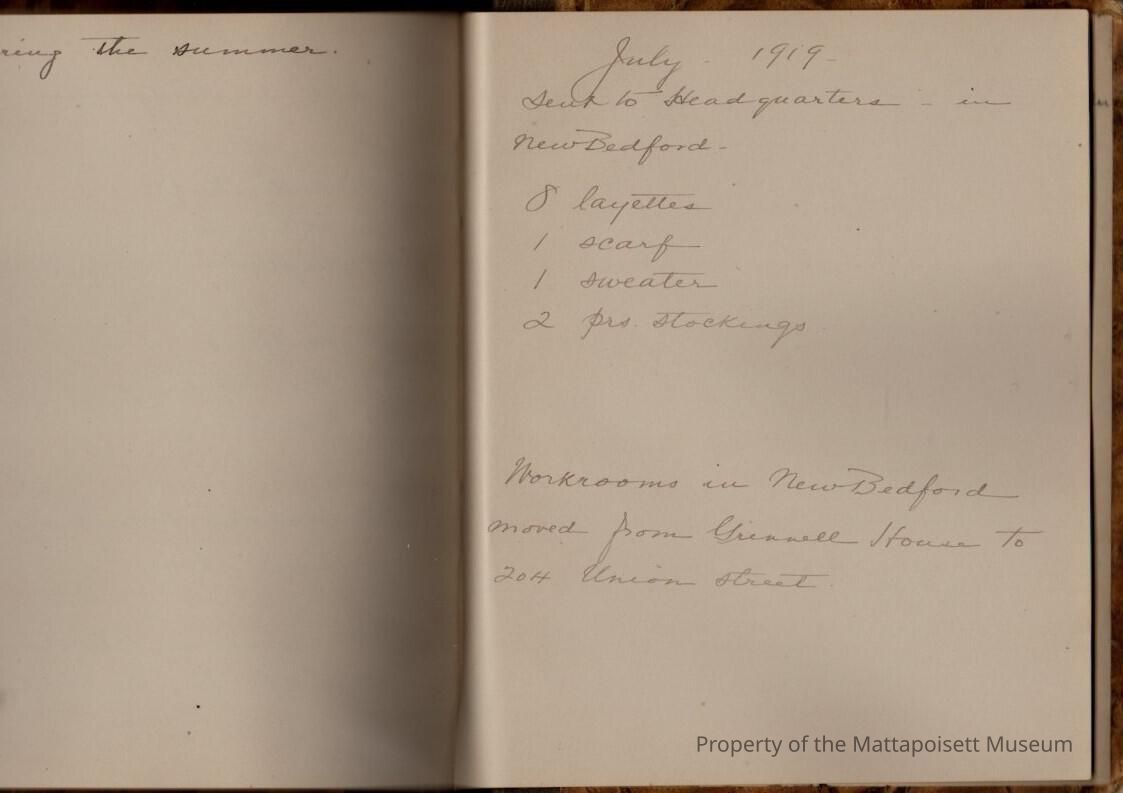 ring the summer.
July - 1919 -
Sent to Headquarters - in
New Bedford -
8 layettes
1 scarf
1 sweater
2 prs. stockings
Workrooms in New Bedford
moved from Grinnell House to
204 Union street.
Property of the Mattapoisett Museum